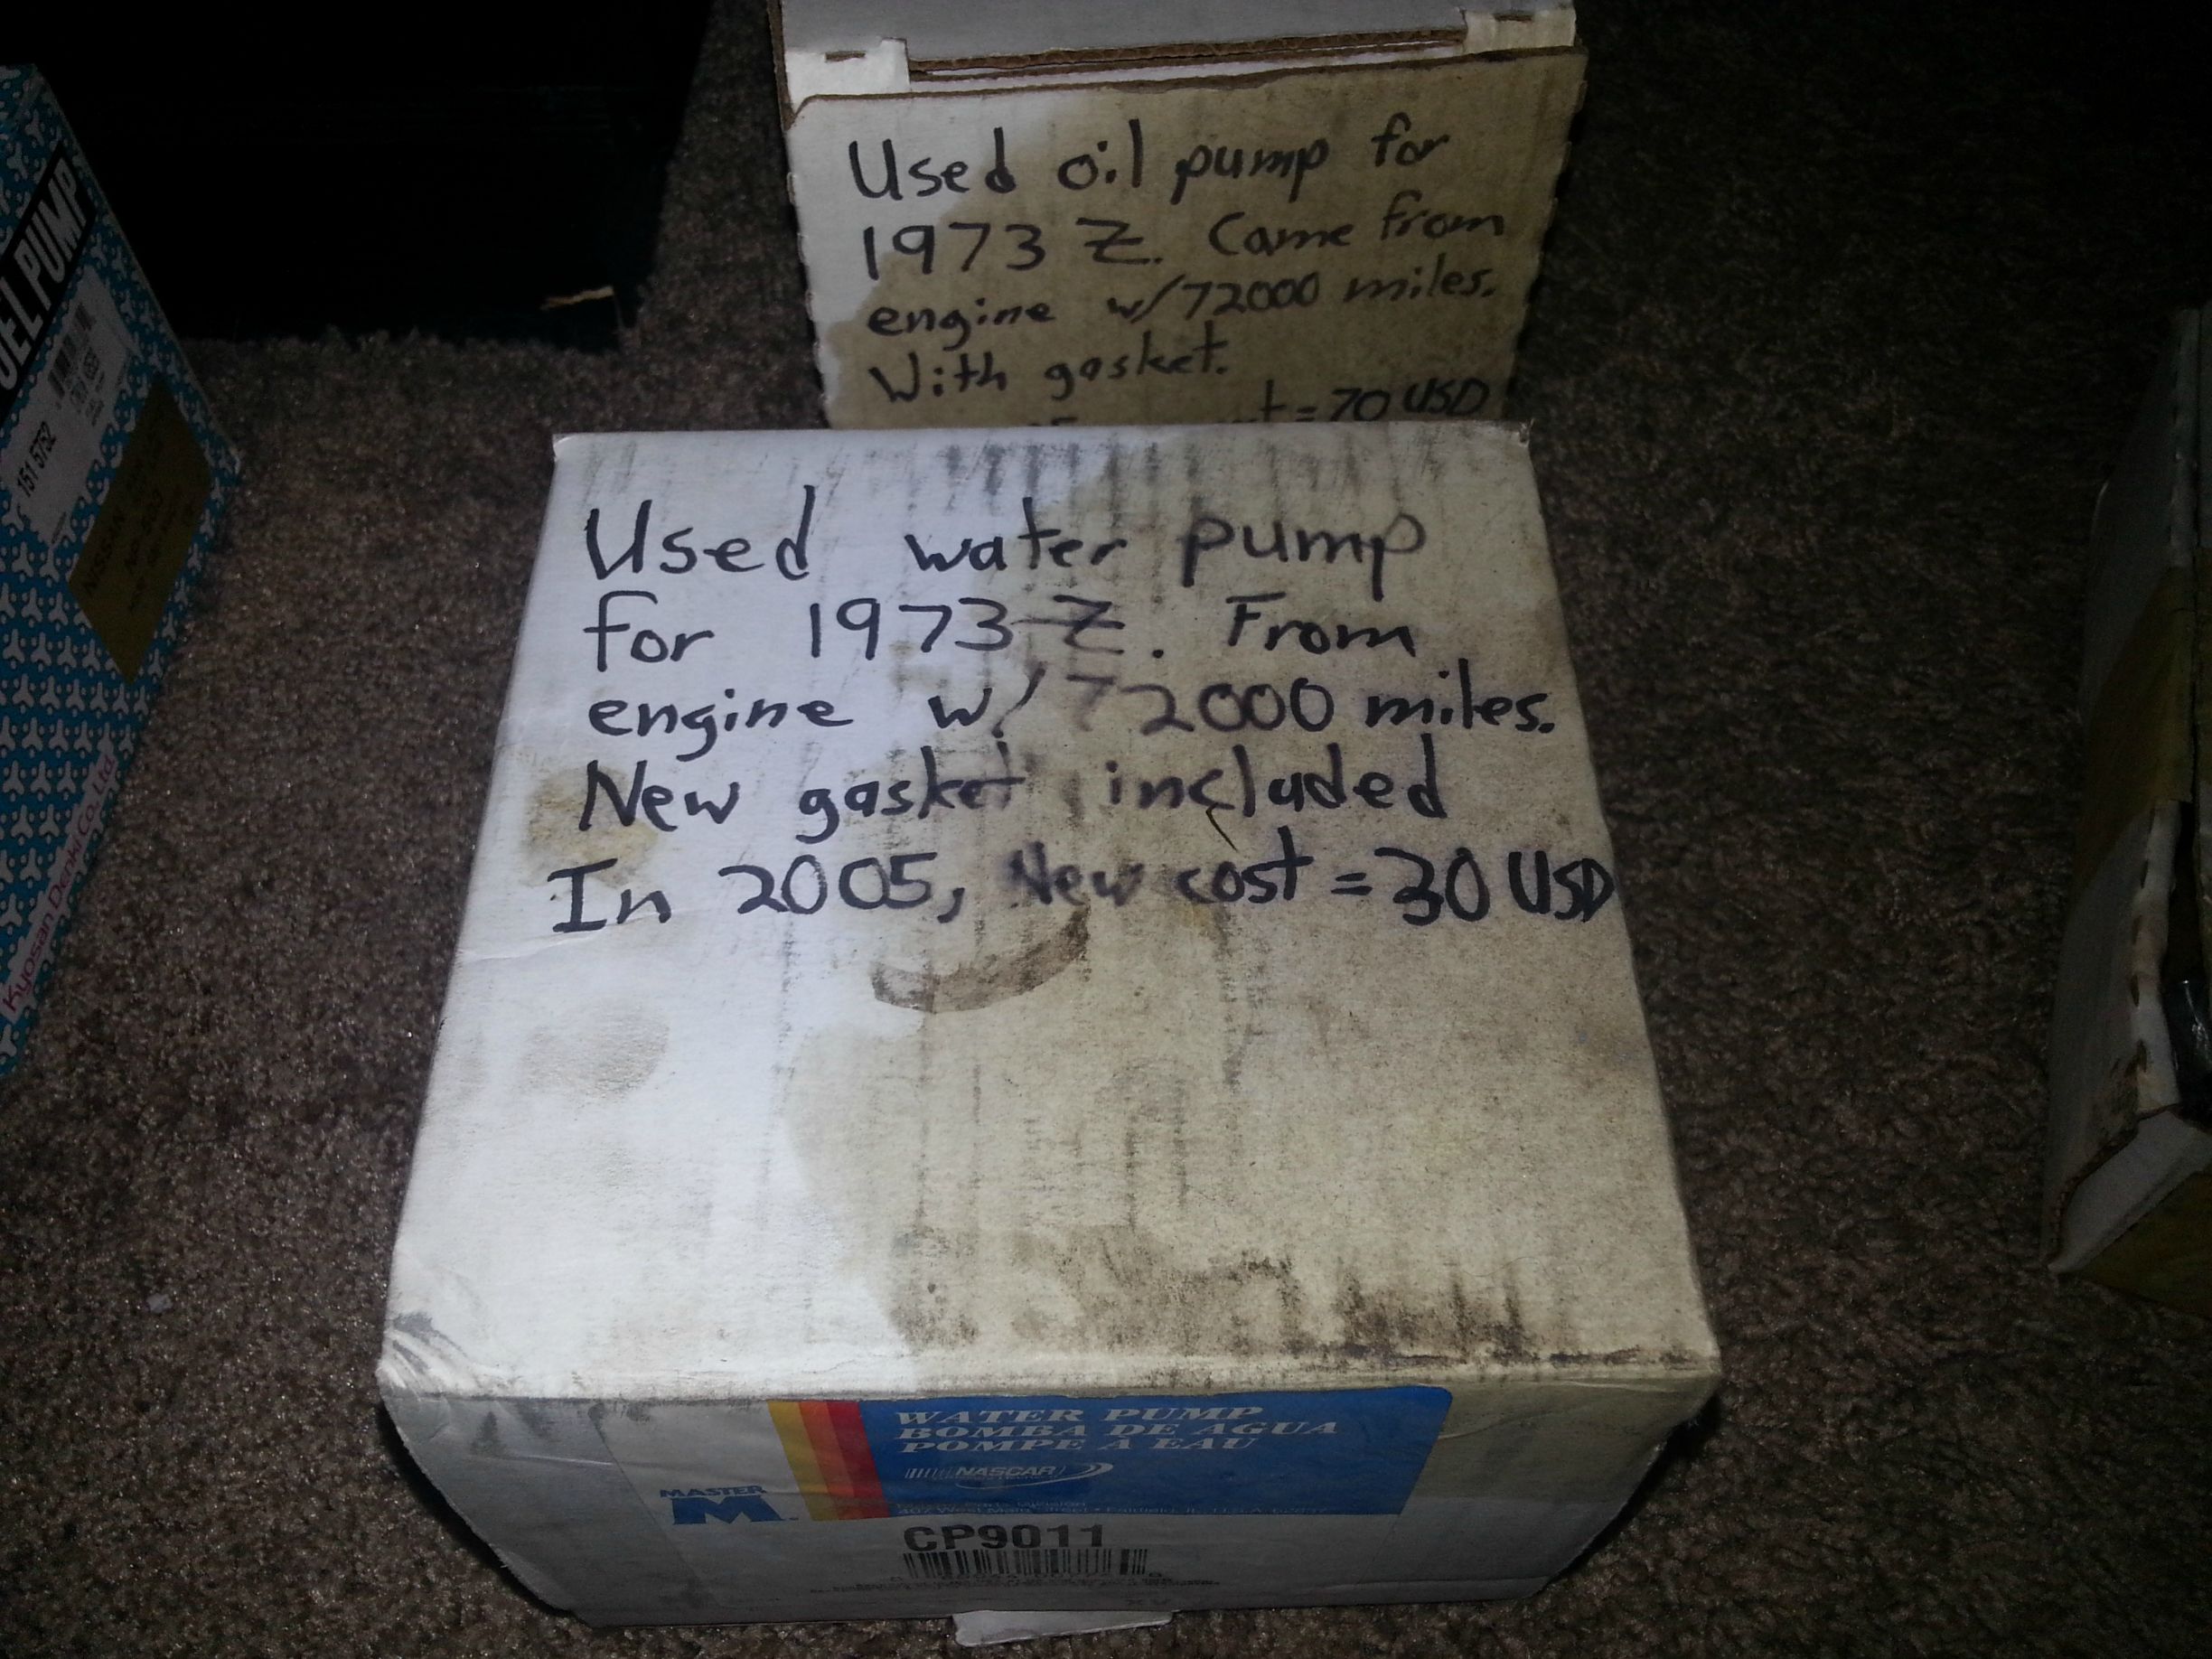 Used oil pump for
1973 Z. Came from
engine w/72000 miles.
With gasket.
= 70 USD
Used water pump
for 1973 Z. From
engine w/ 72000 miles.
New gasket included
In 2005, New cost = 30 USD
WATER PUMP
BOMBA DE AGUA
POMPE À EAU
NASCAR
MASTER
M
CP9011
PUMP
151 5752
Kyosan Denki Co. Ltd